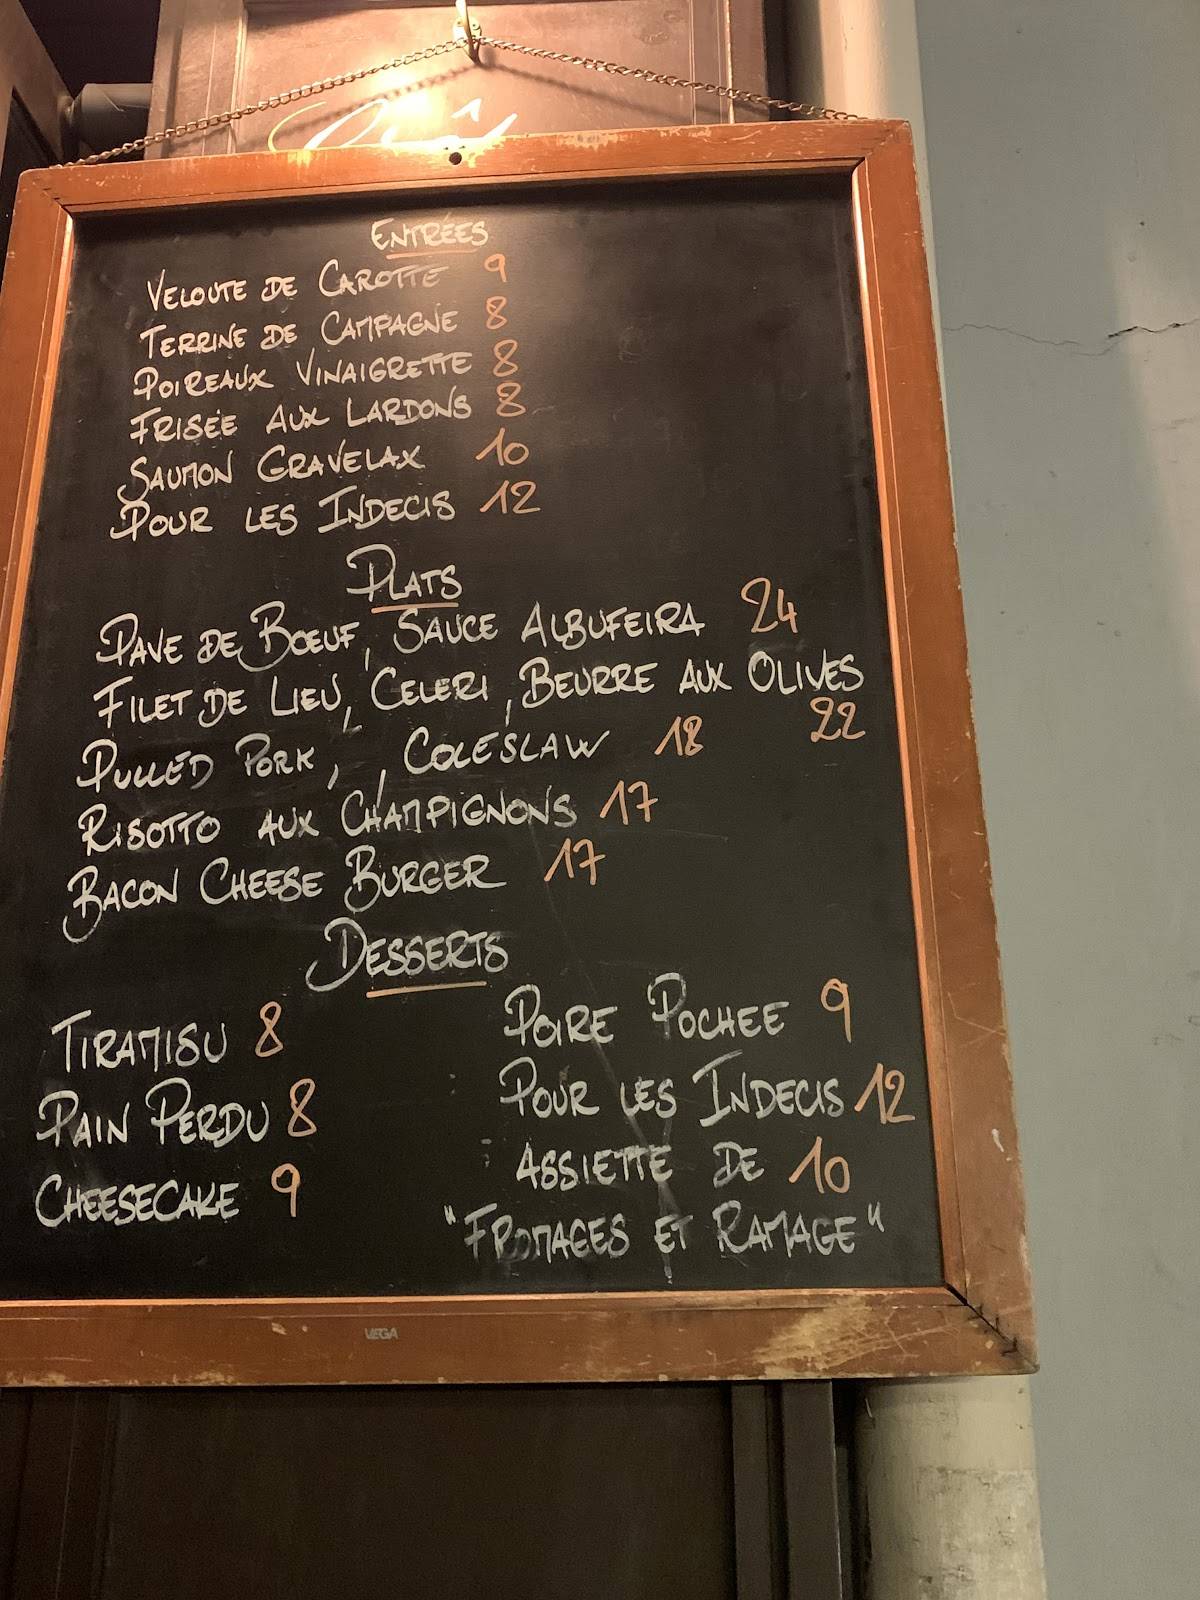 ENTRÉES
VELOUTE DE CAROTTE 9
TERRINE DE CAMPAGNE 8
POIREAUX VINAIGRETTE 8
FRISÉE AUX LARDONS 8
SAUMON GRAVELAX 10
POUR LES INDECIS 12
PLATS
PAVE DE BOEUF, SAUCE ALBUFEIRA 24
FILET DE LIEU, CELERI, BEURRE AUX OLIVES
22
PULLED PORK, , COLESLAW 18
RISOTTO AUX CHAMPIGNONS 17
BACON CHEESE BURGER 17
DESSERTS
TIRAMISU 8
PAIN PERDU 8
CHEESECAKE 9
POIRE POCHEE 9
POUR LES INDECIS 12
ASSIETTE DE 10
"FROMAGES ET RAMAGE"
VEGA